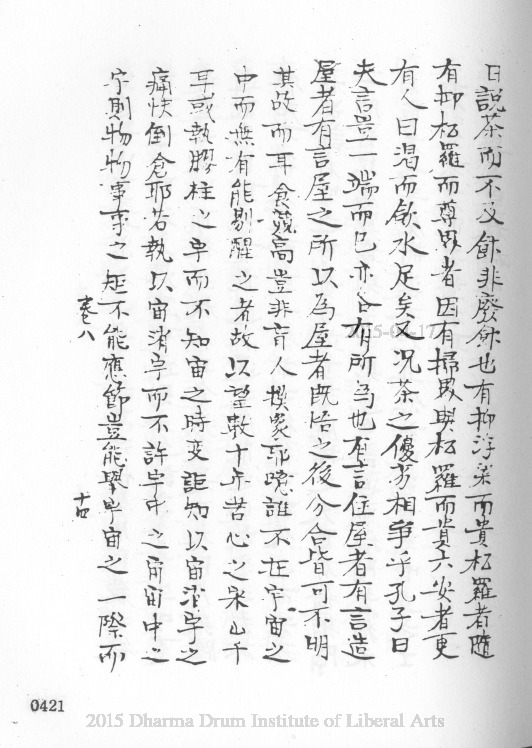 日說茶而不及飰非廢飰也有抑浮梁而貴松羅者隨
有抑松羅而尊界者因有掃界與松羅而貴六安者更
有人曰渴而飲水足矣又況茶之優劣相爭乎孔子曰
夫言豈一端而已亦各有所為也有言住屋者有言造
屋者有言屋之所以為屋者既悟之後分合皆可不明
其故而耳食競高豈非盲人摸象耶噫誰不在宇宙之
中而無有能剔醒之者故以望數十年苦心之宋山千
耳或執膠柱之宇而不知宙之時變詎知以宙消宇之
痛快倒倉耶若執以宙消宇而不許宇中之宙宙中之
宇則物物事事之矩不能應節豈能學宇宙之一際而
卷八
十四
0421
2015 Dharma Drum Institute of Liberal Arts